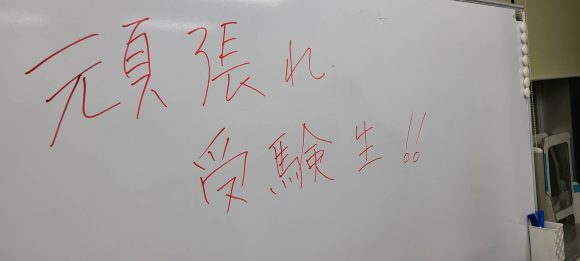 頑張れ
受験生!!